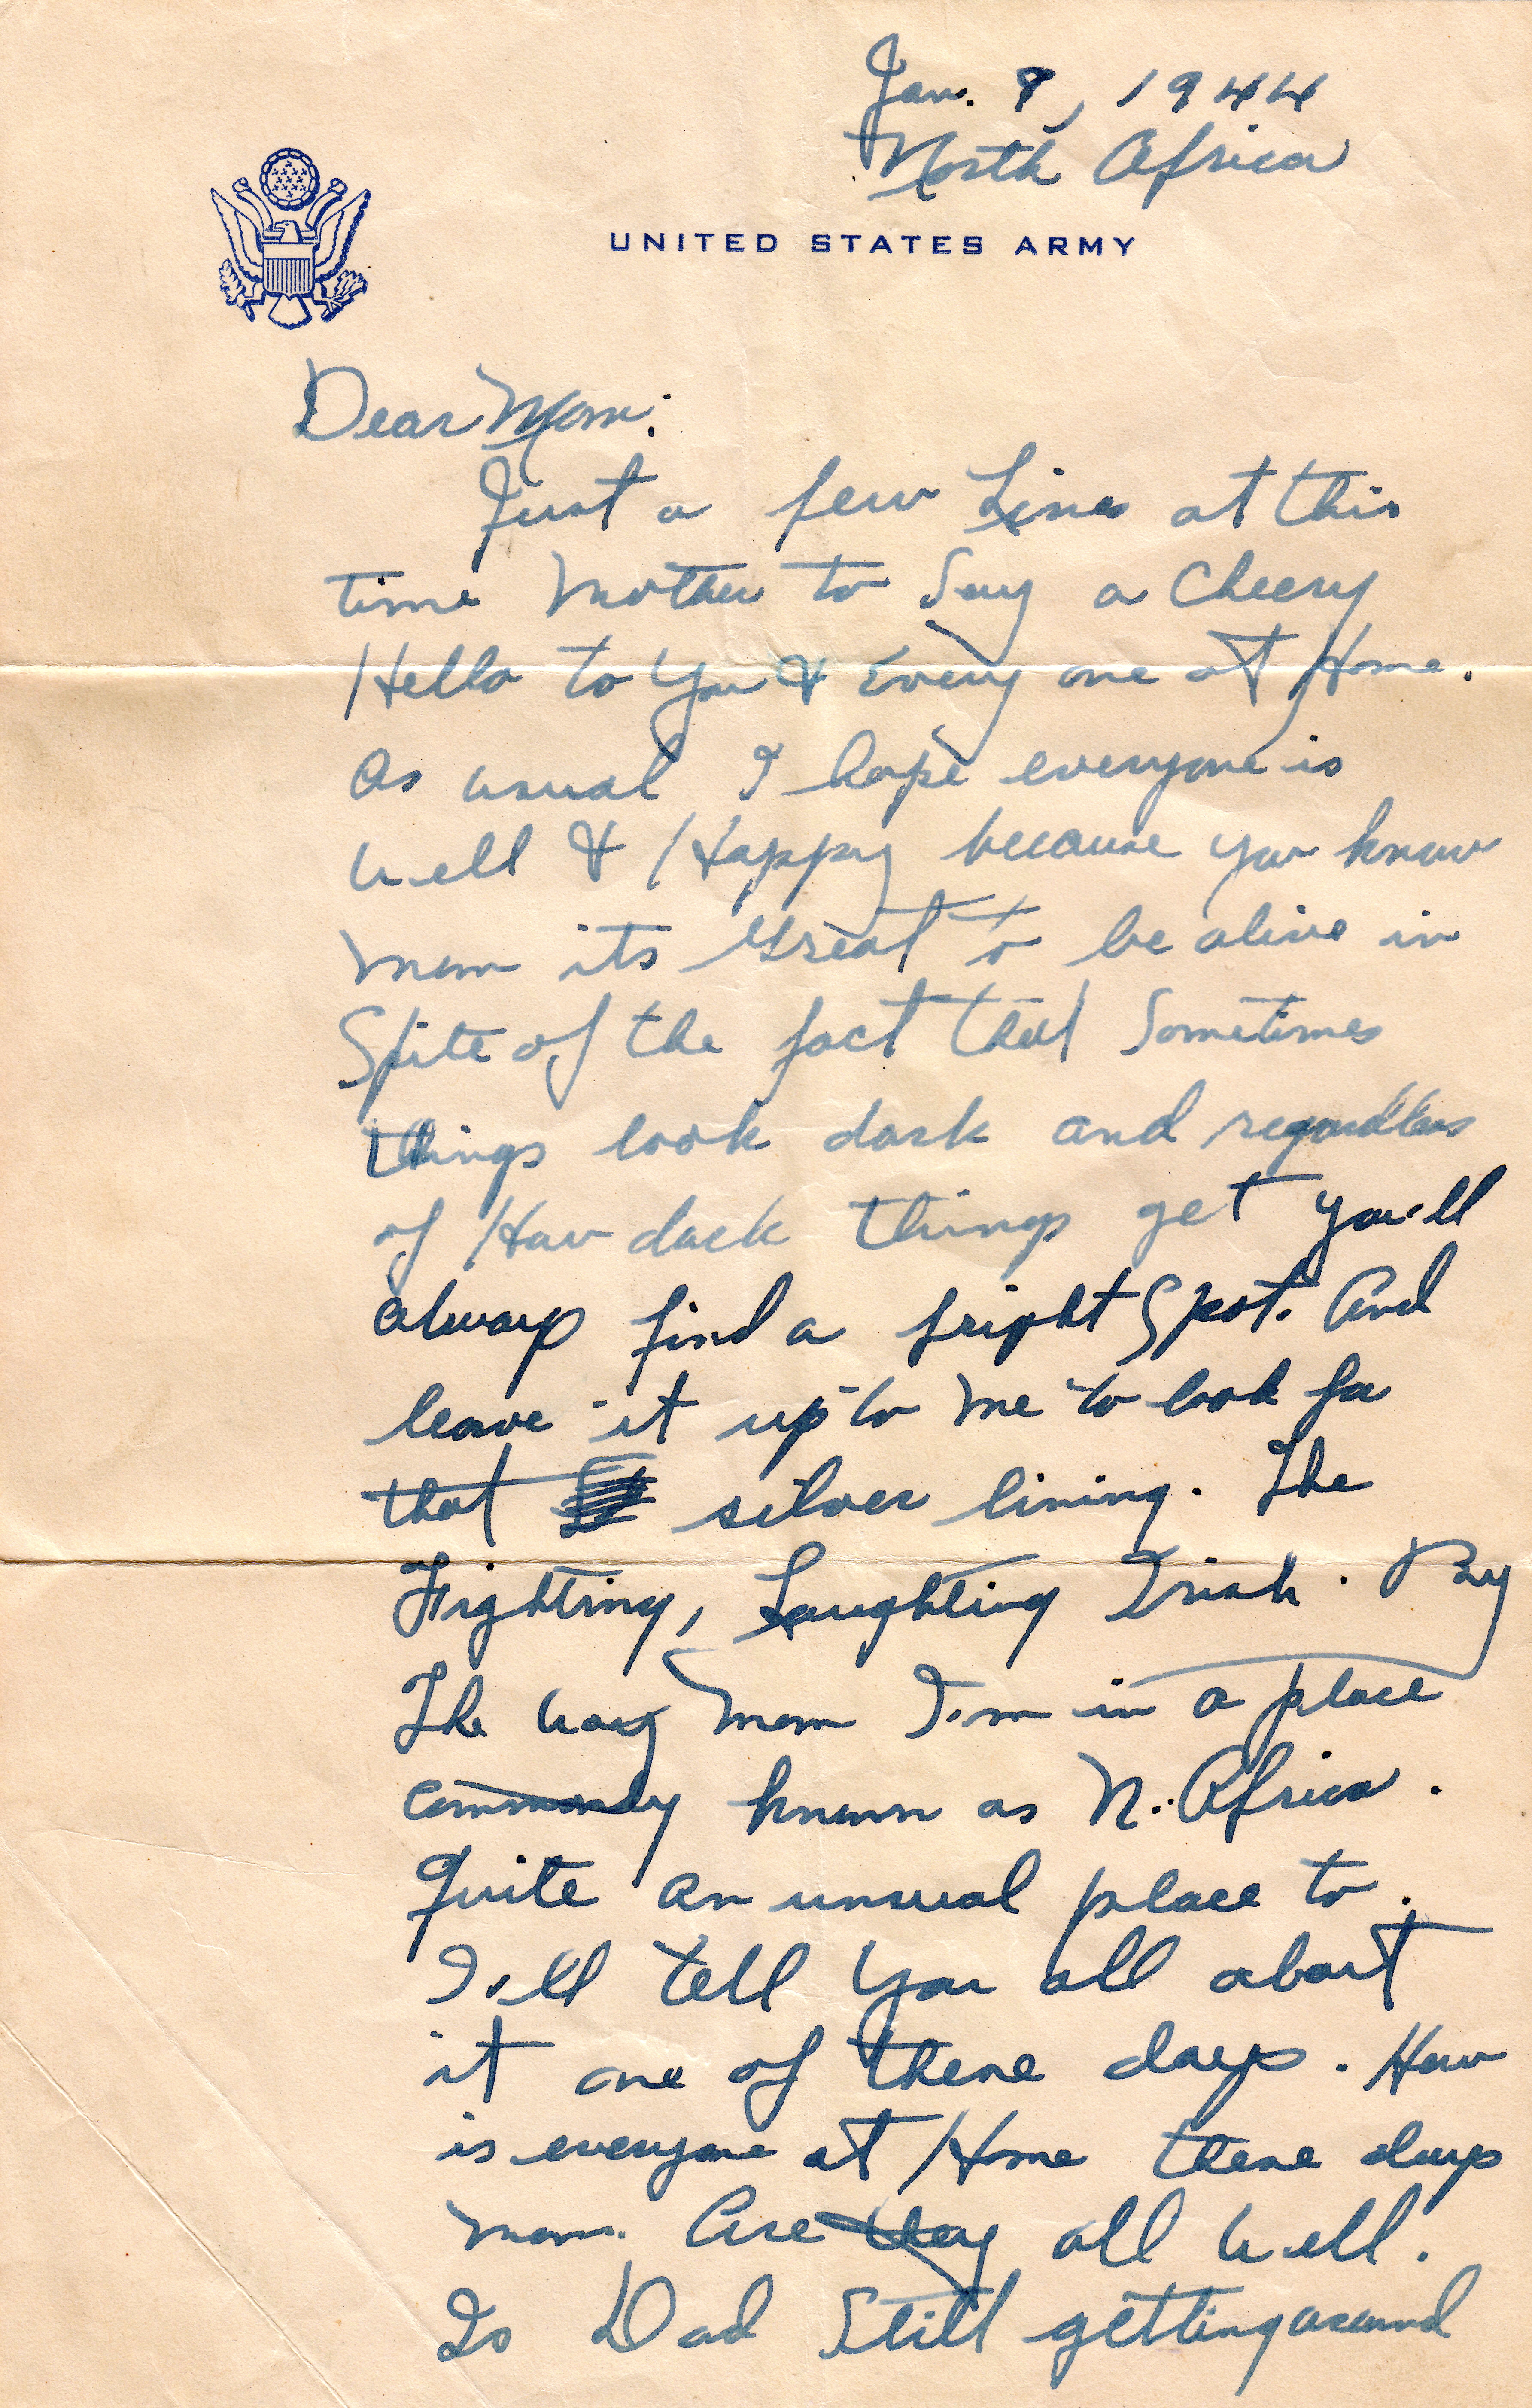 Jan. 8, 1944
North Africa
UNITED STATES ARMY
Dear Mom:
Just a few Lines at this
time Mother to Say a Cheery
Hello to You & Every one at Home.
As usual I hope everyone is
well & Happy because you know
Mom its Great to be alive in
Spite of the fact that Sometimes
things look dark and regardless
of How dark things get you'll
always find a bright Spot. And
leave it up to me to look for
that silver lining. The
Fighting, Laughting Irish. By
The way Mom I'm in a place
commonly known as N. Africa.
Quite an unusual place to.
I'll tell you all about
it one of these days. How
is everyone at Home these days
Mom. Are they all well.
Is Dad Still getting around